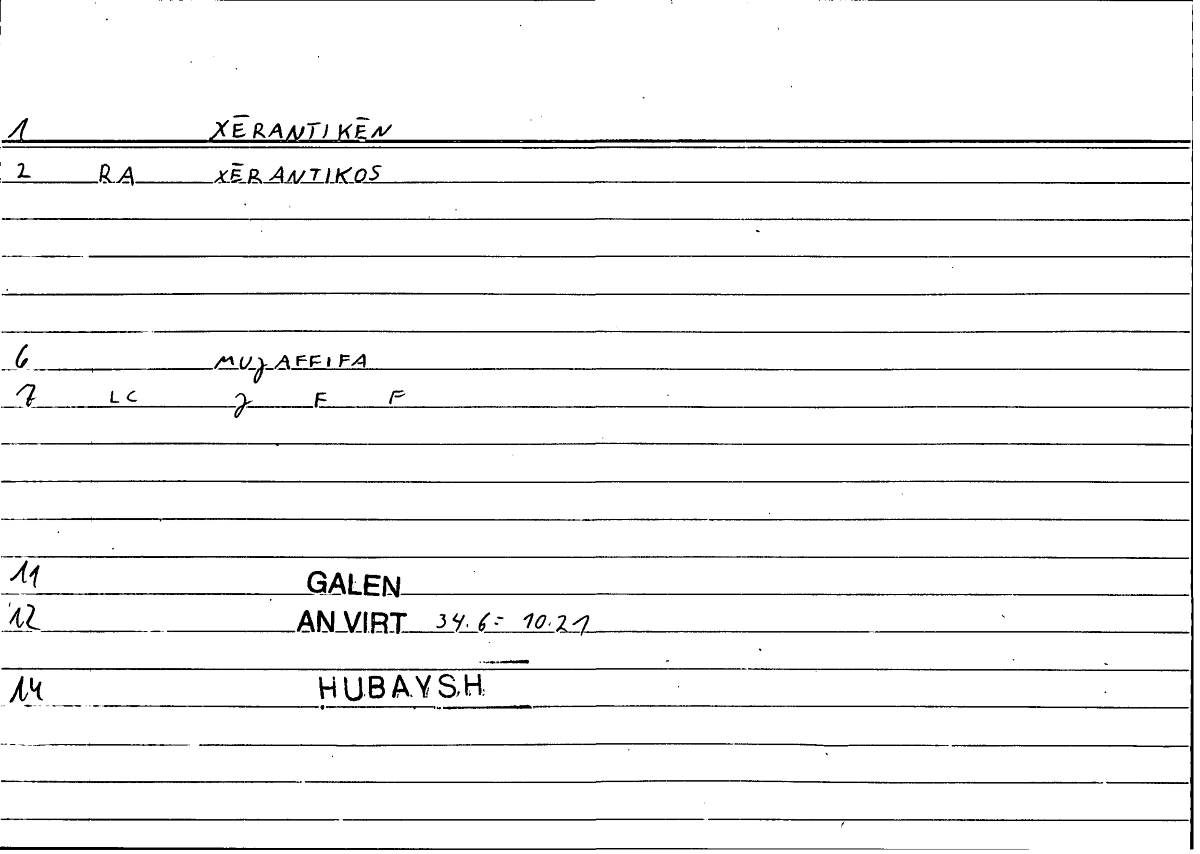 1 XĒRANTIKĒN
2 RA XĒRANTIKOS
6 MUJAFFIFA
7 LC J F F
11 GALEN
12 AN VIRT 34.6 = 10.21
14 HUBAYSH